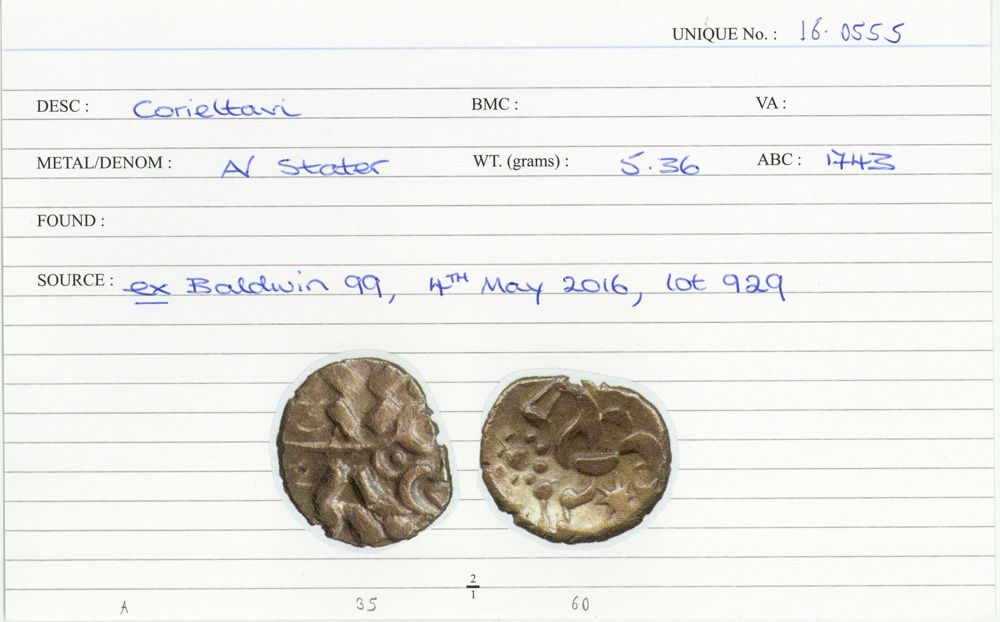 UNIQUE No. : 16.0555
DESC : Corieltavi BMC : VA :
METAL/DENOM : AV Stater WT. (grams) : 5.36 ABC : 1743
FOUND :
SOURCE : ex Baldwin 99, 4TH May 2016, lot 929
2/1
A 35 60